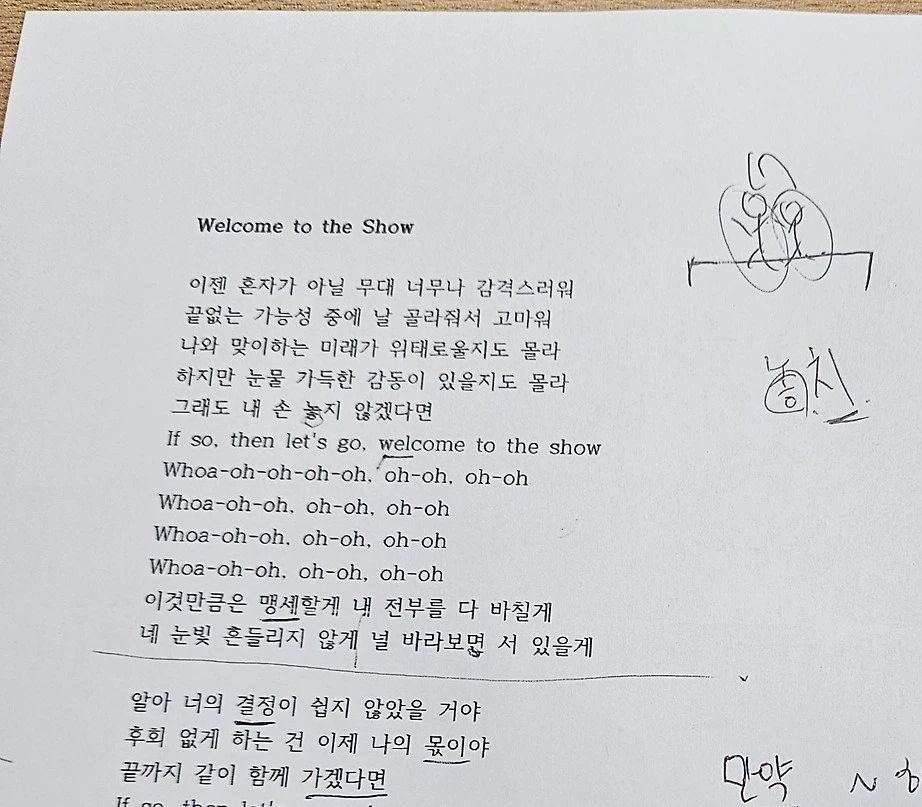 Welcome to the Show
이젠 혼자가 아닐 무대 너무나 감격스러워
끝없는 가능성 중에 날 골라줘서 고마워
나와 맞이하는 미래가 위태로울지도 몰라
하지만 눈물 가득한 감동이 있을지도 몰라
그래도 내 손 놓지 않겠다면
If so, then let's go, welcome to the show
Whoa-oh-oh-oh-oh, oh-oh, oh-oh
Whoa-oh-oh, oh-oh, oh-oh
Whoa-oh-oh, oh-oh, oh-oh
Whoa-oh-oh, oh-oh, oh-oh
이것만큼은 맹세할게 내 전부를 다 바칠게
네 눈빛 흔들리지 않게 널 바라보며 서 있을게
알아 너의 결정이 쉽지 않았을 거야
후회 없게 하는 건 이제 나의 몫이야
끝까지 같이 함께 가겠다면
If so, then let's
놓치
만약 ~